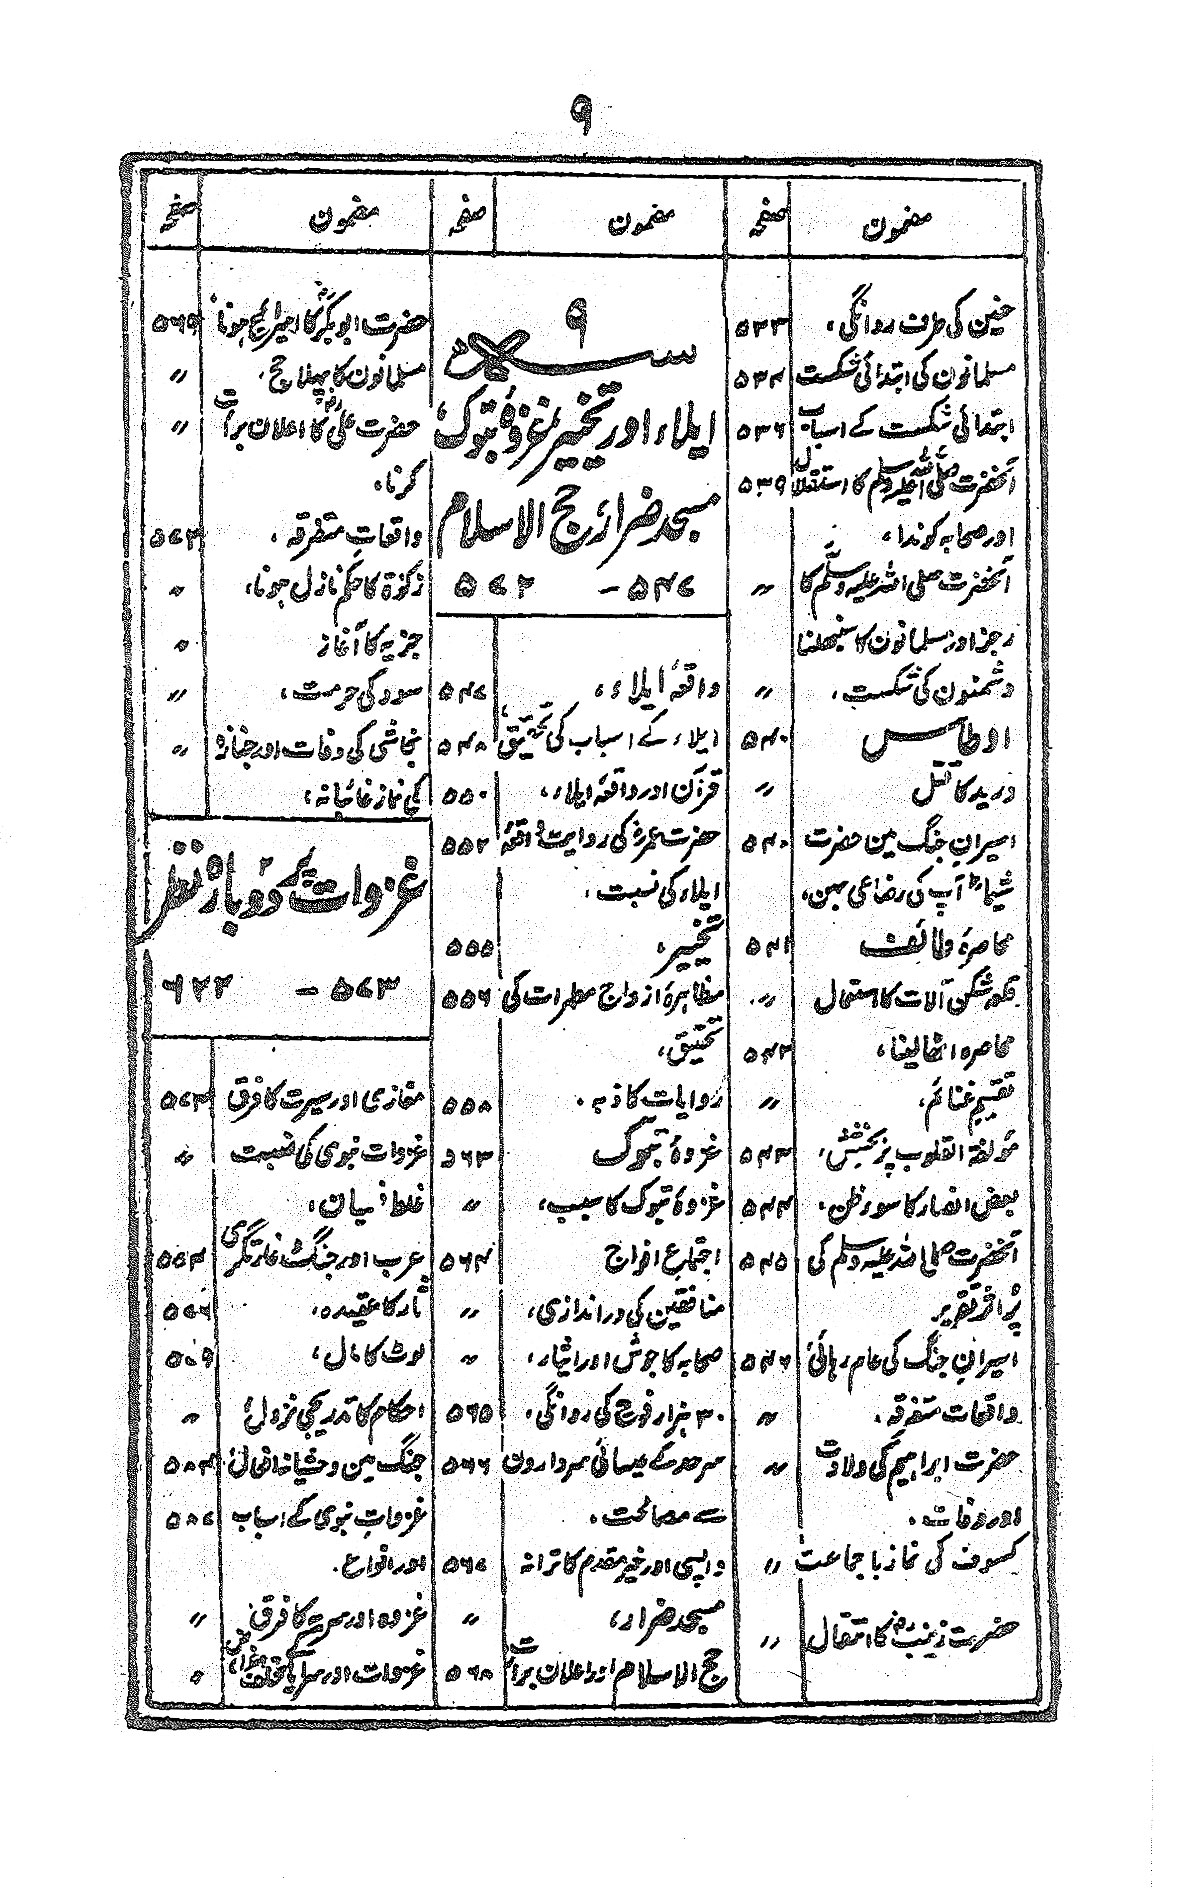 ۹
مضمون صفحہ مضمون صفحہ مضمون صفحہ
حنین کی طرف روانگی، ۵۳۳
مسلمانون کی ابتدائی شکست ۵۳۴
ابتدائی شکست کے اسباب ۵۳۶
آنحضرت صلی اللہ علیہ وسلم کا استقلال ۵۳۹
اور صحابہ کو ندا،
آنحضرت صلی اللہ علیہ وسلم کا 〃
رجز اور مسلمانون کا سنبھلنا
دشمنون کی شکست، 〃
اوطاس ۵۴۰
درید کا قتل 〃
اسیرانِ جنگ مین حضرت ۵۴۰
شیماؓ آپ کی رضاعی بہن،
محاصرۂ طائف ۵۴۱
قلعہ شکن آلات کا استعمال 〃
محاصرہ اٹھا لینا، ۵۴۲
تقسیمِ غنائم، 〃
مؤلفۃ القلوب پر بخشش، ۵۴۳
بعض انصار کا سوء ظن، ۵۴۴
آنحضرت صلی اللہ علیہ وسلم کی ۵۴۵
پُر اثر تقریر
اسیرانِ جنگ کی عام رہائی ۵۴۶
واقعات متفرقہ، 〃
حضرت ابراہیم کی ولادت 〃
اور وفات،
کسوف کی نماز با جماعت 〃
حضرت زینبؓ کا انتقال 〃
سنہ ۹ ھ
ایلاء اور تخییر، غزوۂ تبوک،
مسجد ضرار، حج الاسلام
۵۴۷ - ۵۷۲
واقعۂ ایلاء، ۵۴۷
ایلاء کے اسباب کی تحقیق، ۵۴۸
قرآن اور واقعۂ ایلاء، ۵۵۰
حضرت عمرؓ کی روایت واقعۂ ۵۵۲
ایلاء کی نسبت،
تخییر، ۵۵۵
مظاہرۂ ازواج مطہرات کی ۵۵۶
تحقیق،
روایات کاذبہ، ۵۵۸
غزوۂ تبوک ۵۶۳
غزوۂ تبوک کا سبب، 〃
اجتماعِ افواج ۵۶۴
منافقین کی دراندازی، 〃
صحابہ کا جوش اور ایثار، 〃
۳۰ ہزار فوج کی روانگی، ۵۶۵
سرحد کے عیسائی سردارون ۵۶۶
سے مصالحت،
واپسی اور خیر مقدم کا ترانہ ۵۶۷
مسجد ضرار، 〃
حج الاسلام اور اعلان برأت ۵۶۸
حضرت ابوبکرؓ کا امیر الحج ہونا، ۵۶۹
مسلمانون کا پہلا حج، 〃
حضرت علیؓ کا اعلان برأت 〃
کرنا،
واقعات متفرقہ، ۵۷۲
زکوٰۃ کا حکم نازل ہونا، 〃
جزیہ کا آغاز 〃
سود کی حرمت، 〃
نجاشی کی وفات اور جنازہ 〃
کی نماز غائبانہ،
غزوات پر دوبارہ نظر
۵۷۳ - ۶۲۲
مغازی اور سیرت کا فرق ۵۷۳
غزوات نبوی کی نسبت 〃
غلط فہمیان،
عرب اور جنگ و غارتگری ۵۷۴
ثار کا عقیدہ، ۵۷۶
لوٹ کا مال، ۵۷۹
احکام کا تدریجی نزول، 〃
جنگ مین وحشیانہ افعال ۵۸۳
غزواتِ نبوی کے اسباب ۵۸۷
اور انواع،
غزوہ اور سریہ کا فرق 〃
غزوات اور سرایا کے مختلف اغراض 〃